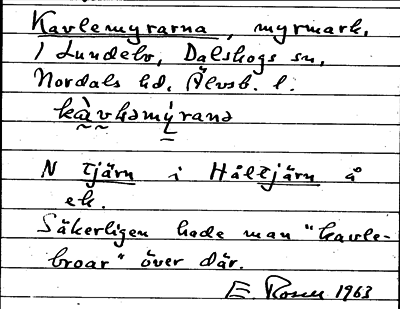 Kavlemyrarna, myrmark,
i Lundebo, Dalskogs sn,
Nordals hd, Älvsb. l.
kàvləmýranə
N Tjärn i Håltjärn å
ek.
Säkerligen hade man "kavle-
broar" över där.
E. Rosell 1963